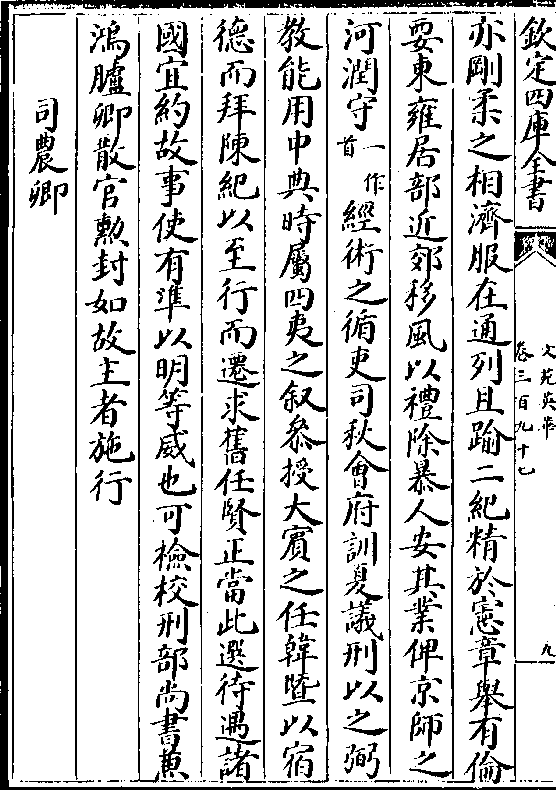 欽定四庫全書
文苑英華
卷三百九十七
九
亦剛柔之相濟服在通列且踰二紀精於憲章舉有倫
要東雍居部近郊移風以禮除暴人安其業俾京師之
河潤守一作首經術之循吏司秋會府訓夏議刑以之弼
教能用中典時屬四夷之叙叅授大賓之任韓暨以宿
德而拜陳紀以至行而遷求舊任賢正當此選待遇諸
國宜約故事使有準以明等威也可檢校刑部尚書兼
鴻臚卿散官勲封如故主者施行
司農卿